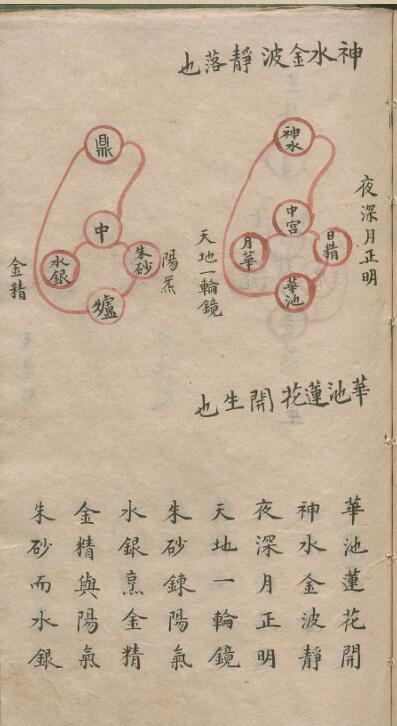 神水金波靜落也
神水
中宮
日精
月華
華池
夜深月正明
天地一輪鏡
鼎
中
朱砂
水銀
爐
陽炁
金精
華池蓮花開生也
華池蓮花開
神水金波靜
夜深月正明
天地一輪鏡
朱砂鍊陽氣
水銀烹金精
金精與陽氣
朱砂而水銀